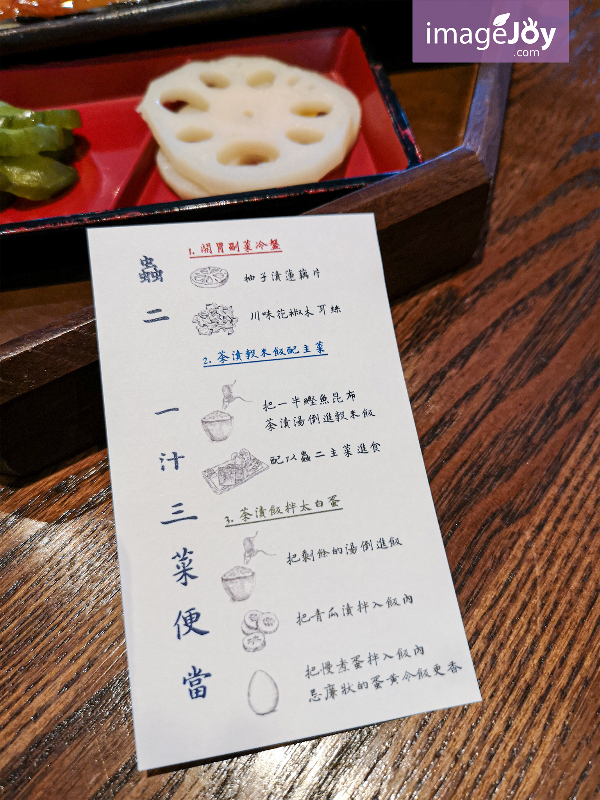 imageJoy
.com
蟲二
一汁三菜便當
1. 開胃副菜冷盤
柚子漬蓮藕片
川味花椒木耳絲
2. 茶漬穀米飯配主菜
把一半鰹魚昆布
茶漬湯倒進穀米飯
配以蟲二主菜進食
3. 茶漬飯拌太白蛋
把剩餘的湯倒進飯
把青瓜漬拌入飯內
把慢煮蛋拌入飯內
忌廉狀的蛋黃令飯更香